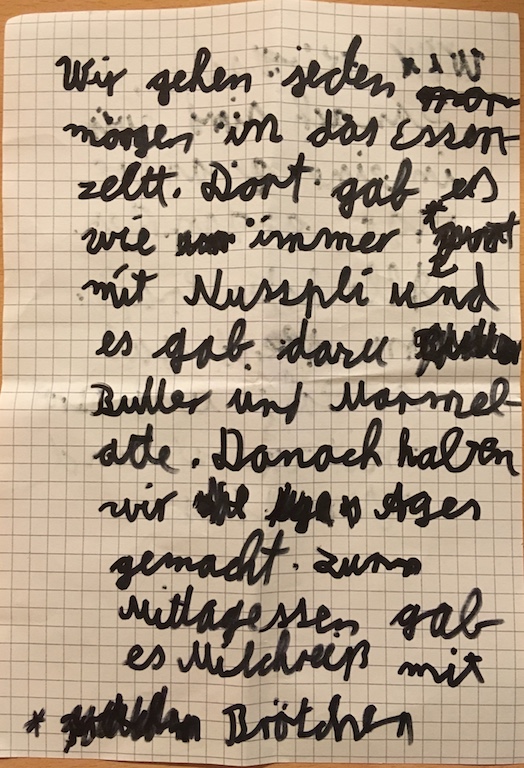 Wir gehen jeden
mörgen in das Essen-
zeltt. Dort gab es
wie immer *
mit Nusspli und
es gab dazu
Butter und Marmel-
ate. Danach haben
wir Ages
gemacht. zum
Mittagessen gab
es Milchreiß mit
* Brötchen